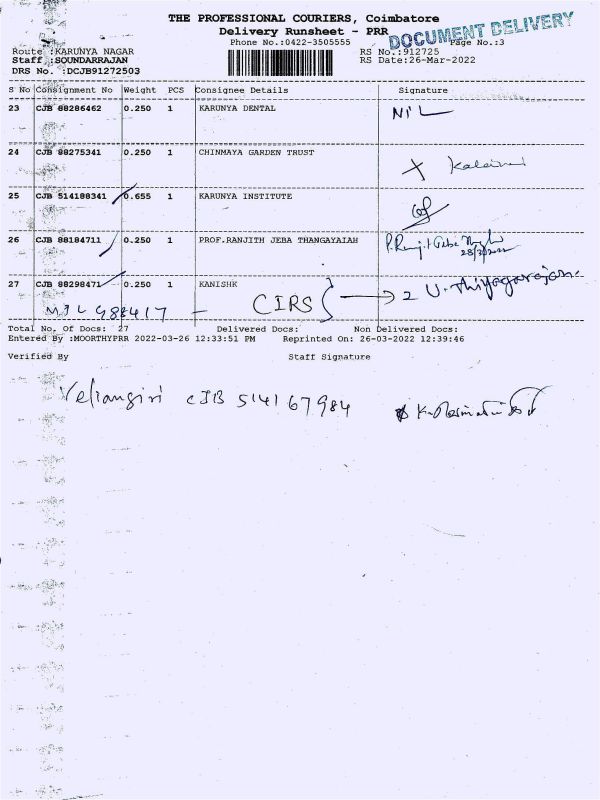 THE PROFESSIONAL COURIERS, Coimbatore
Delivery Runsheet - PRR
DOCUMENT DELIVERY
Phone No.:0422-3505555 Page No.:3
Route :KARUNYA NAGAR RS No.:912725
Staff :SOUNDARRAJAN RS Date:26-Mar-2022
DRS No. :DCJB91272503
S No Consignment No Weight PCS Consignee Details Signature
23 CJB 88286462 0.250 1 KARUNYA DENTAL NIL
24 CJB 88275341 0.250 1 CHINMAYA GARDEN TRUST
25 CJB 514188341 0.655 1 KARUNYA INSTITUTE
26 CJB 88184711 0.250 1 PROF.RANJITH JEBA THANGAYAIAH
27 CJB 88298471 0.250 1 KANISHK
CIRS } → 2 U. Thiyagarajan
Total No. Of Docs: 27 Delivered Docs: Non Delivered Docs:
Entered By :MOORTHYPRR 2022-03-26 12:33:51 PM Reprinted On: 26-03-2022 12:39:46
Verified By Staff Signature
Veliangiri CJB 514167984